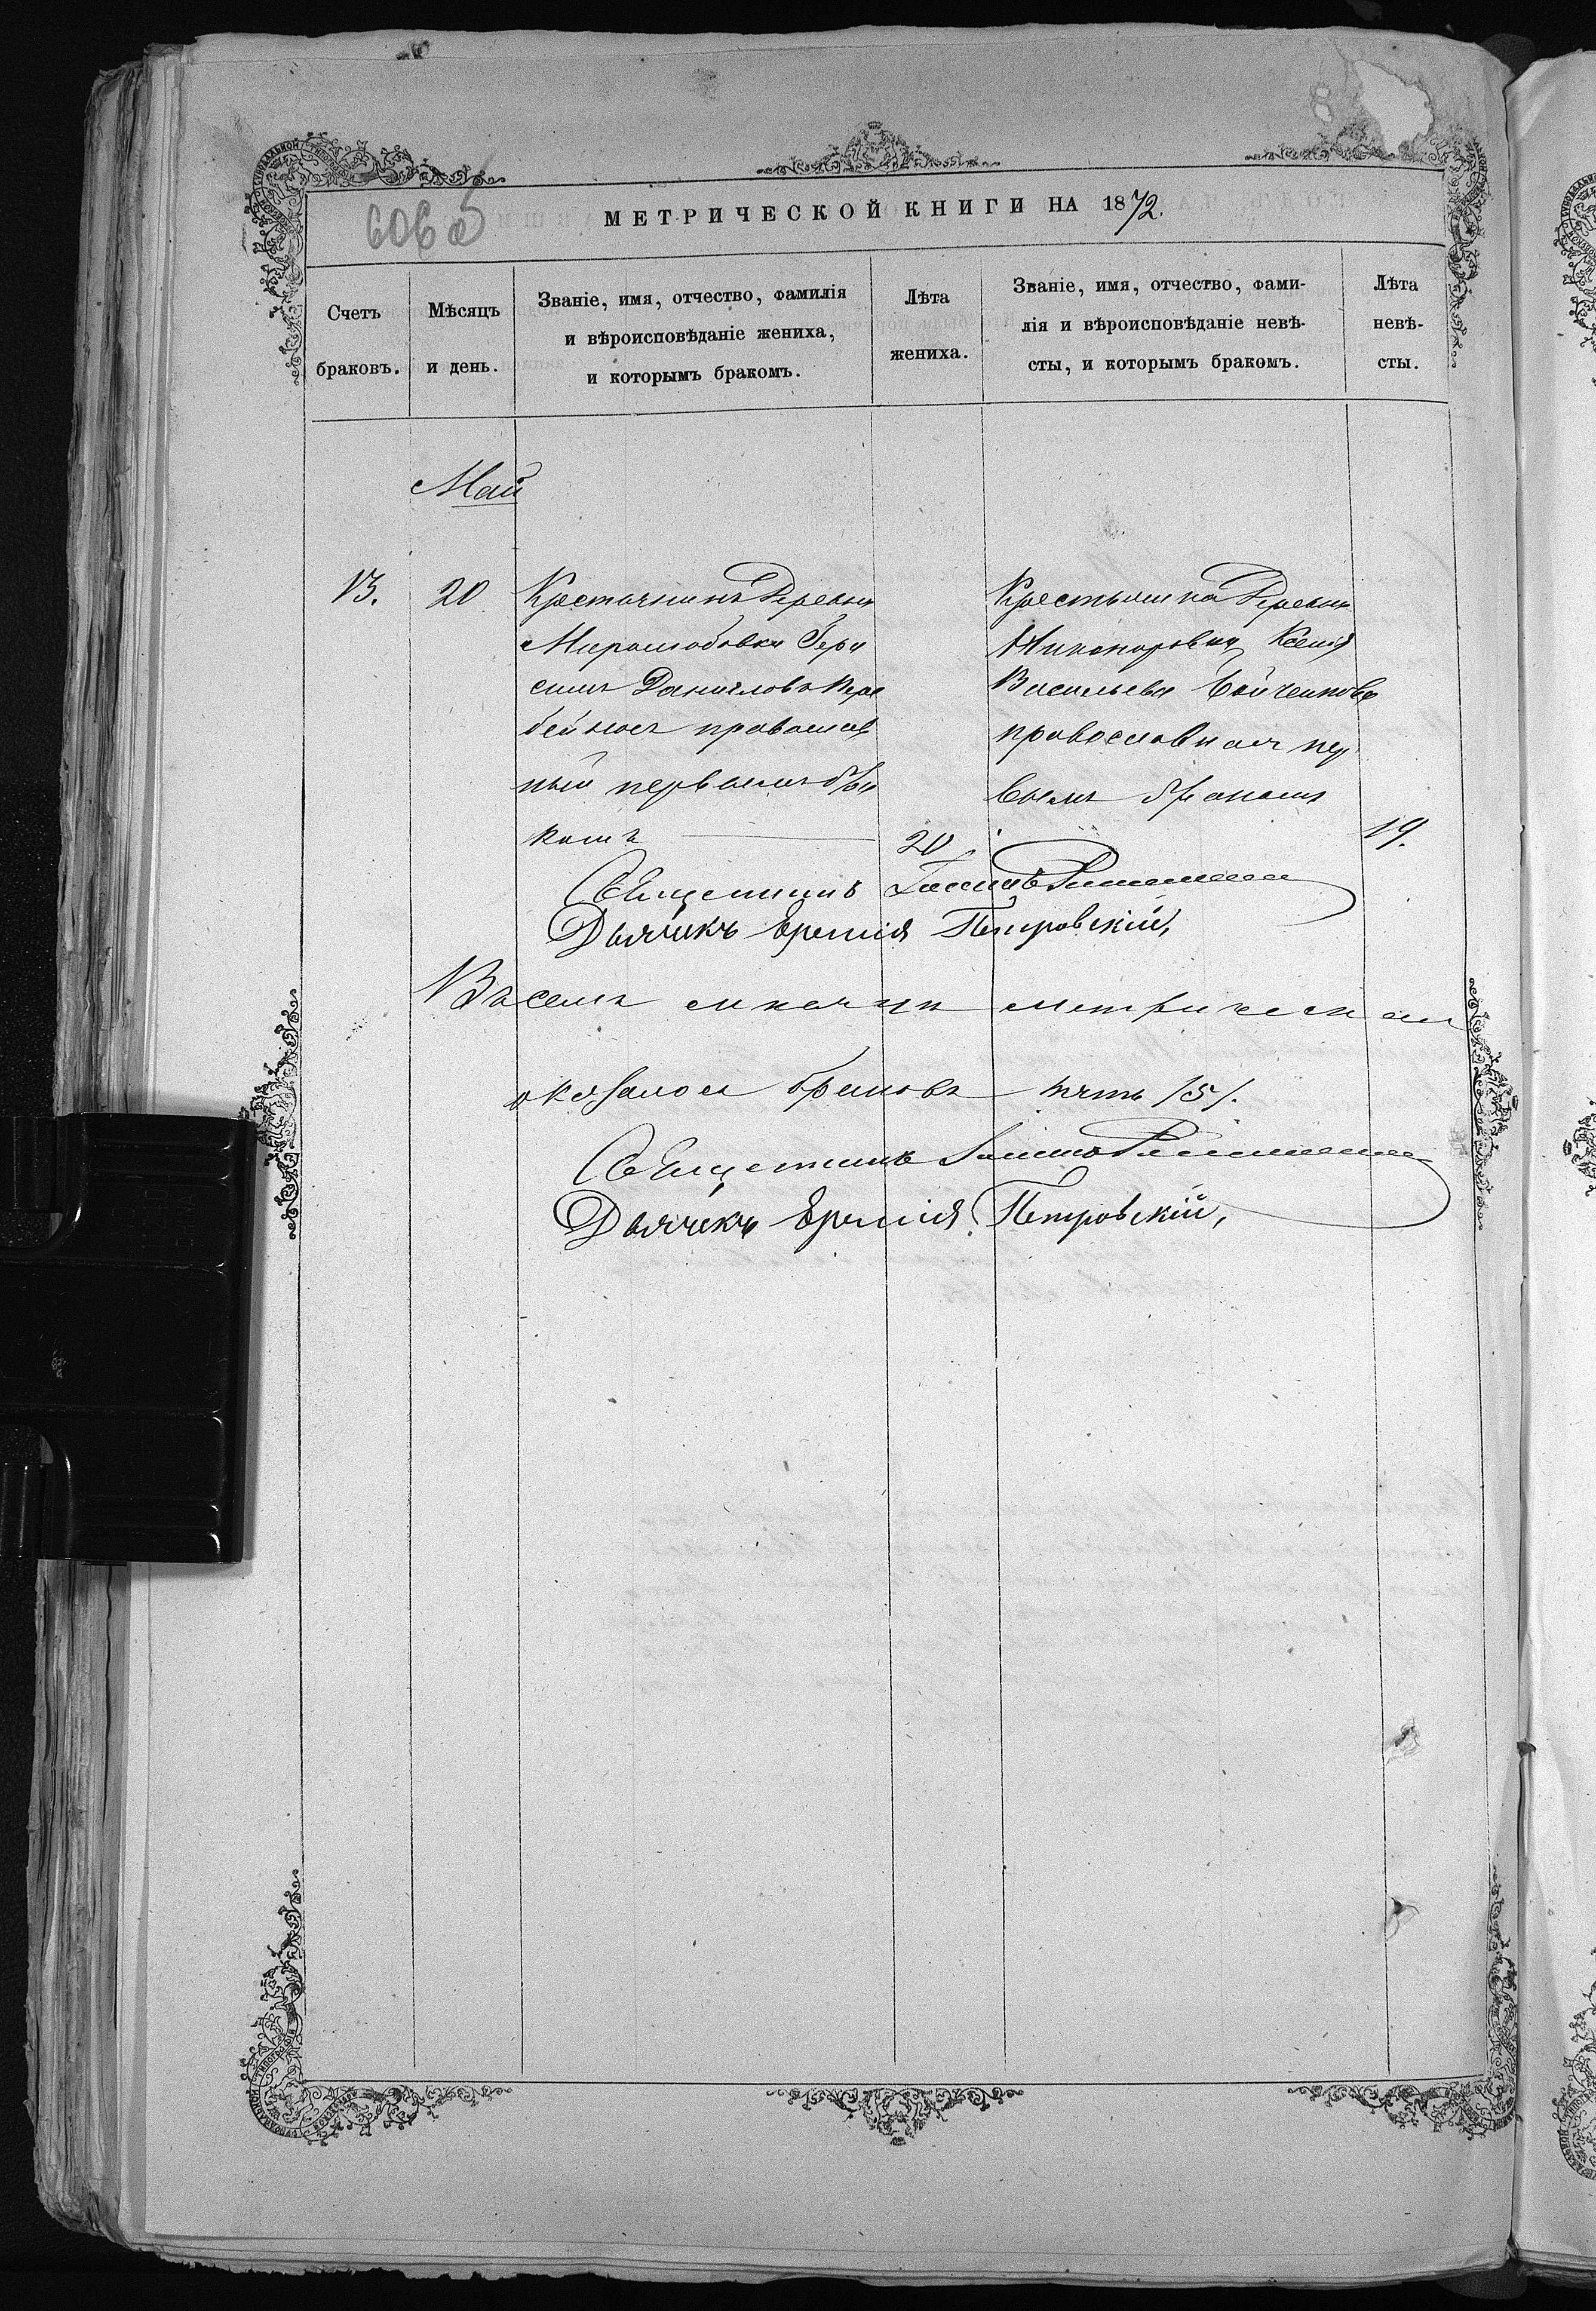 606 об
МЕТРИЧЕСКОЙ КНИГИ НА 1872.
Счетъ браковъ.
Мѣсяцъ и день.
Званіе, имя, отчество, фамилія
и вѣроисповѣданіе жениха,
и которымъ бракомъ.
Лѣта жениха.
Званіе, имя, отчество, фами-
лія и вѣроисповѣданіе невѣ-
сты, и которымъ бракомъ.
Лѣта невѣ-
сты.
Май
13.
20
Крестьянинъ Деревни
Миролюбовки Гера
симъ Даниловъ
православ
ный первымъ бра
комъ
20
Крестьянка Деревни
Никаноровки Ксенія
Васильева
православная пер
вымъ бракомъ
19.
Священникъ
Дьячекъ Еремія Петровскій,
Въ семъ мѣсяцѣ
оказалось браковъ пять /5/.
Священникъ
Дьячекъ Еремія Петровскій,